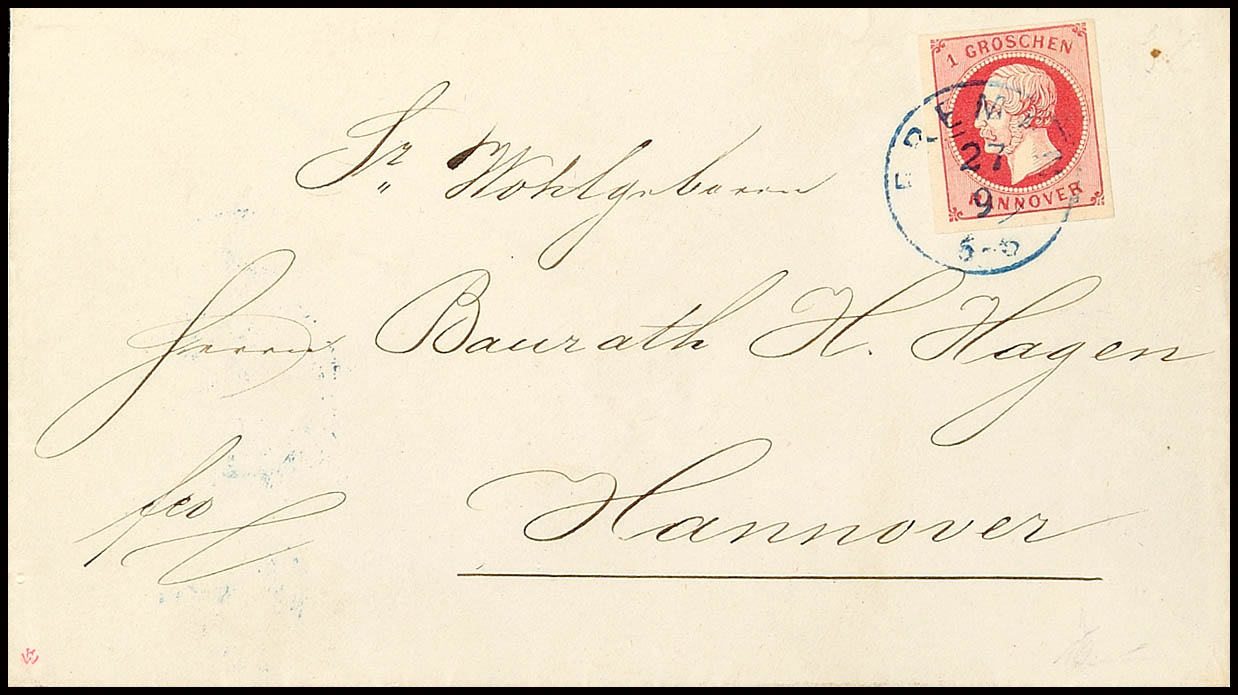 1 GROSCHEN
HANNOVER
BREMEN
27
9
5-6
Sr Wohlgeboren
Herrn Baurath H. Hagen
fco Hannover